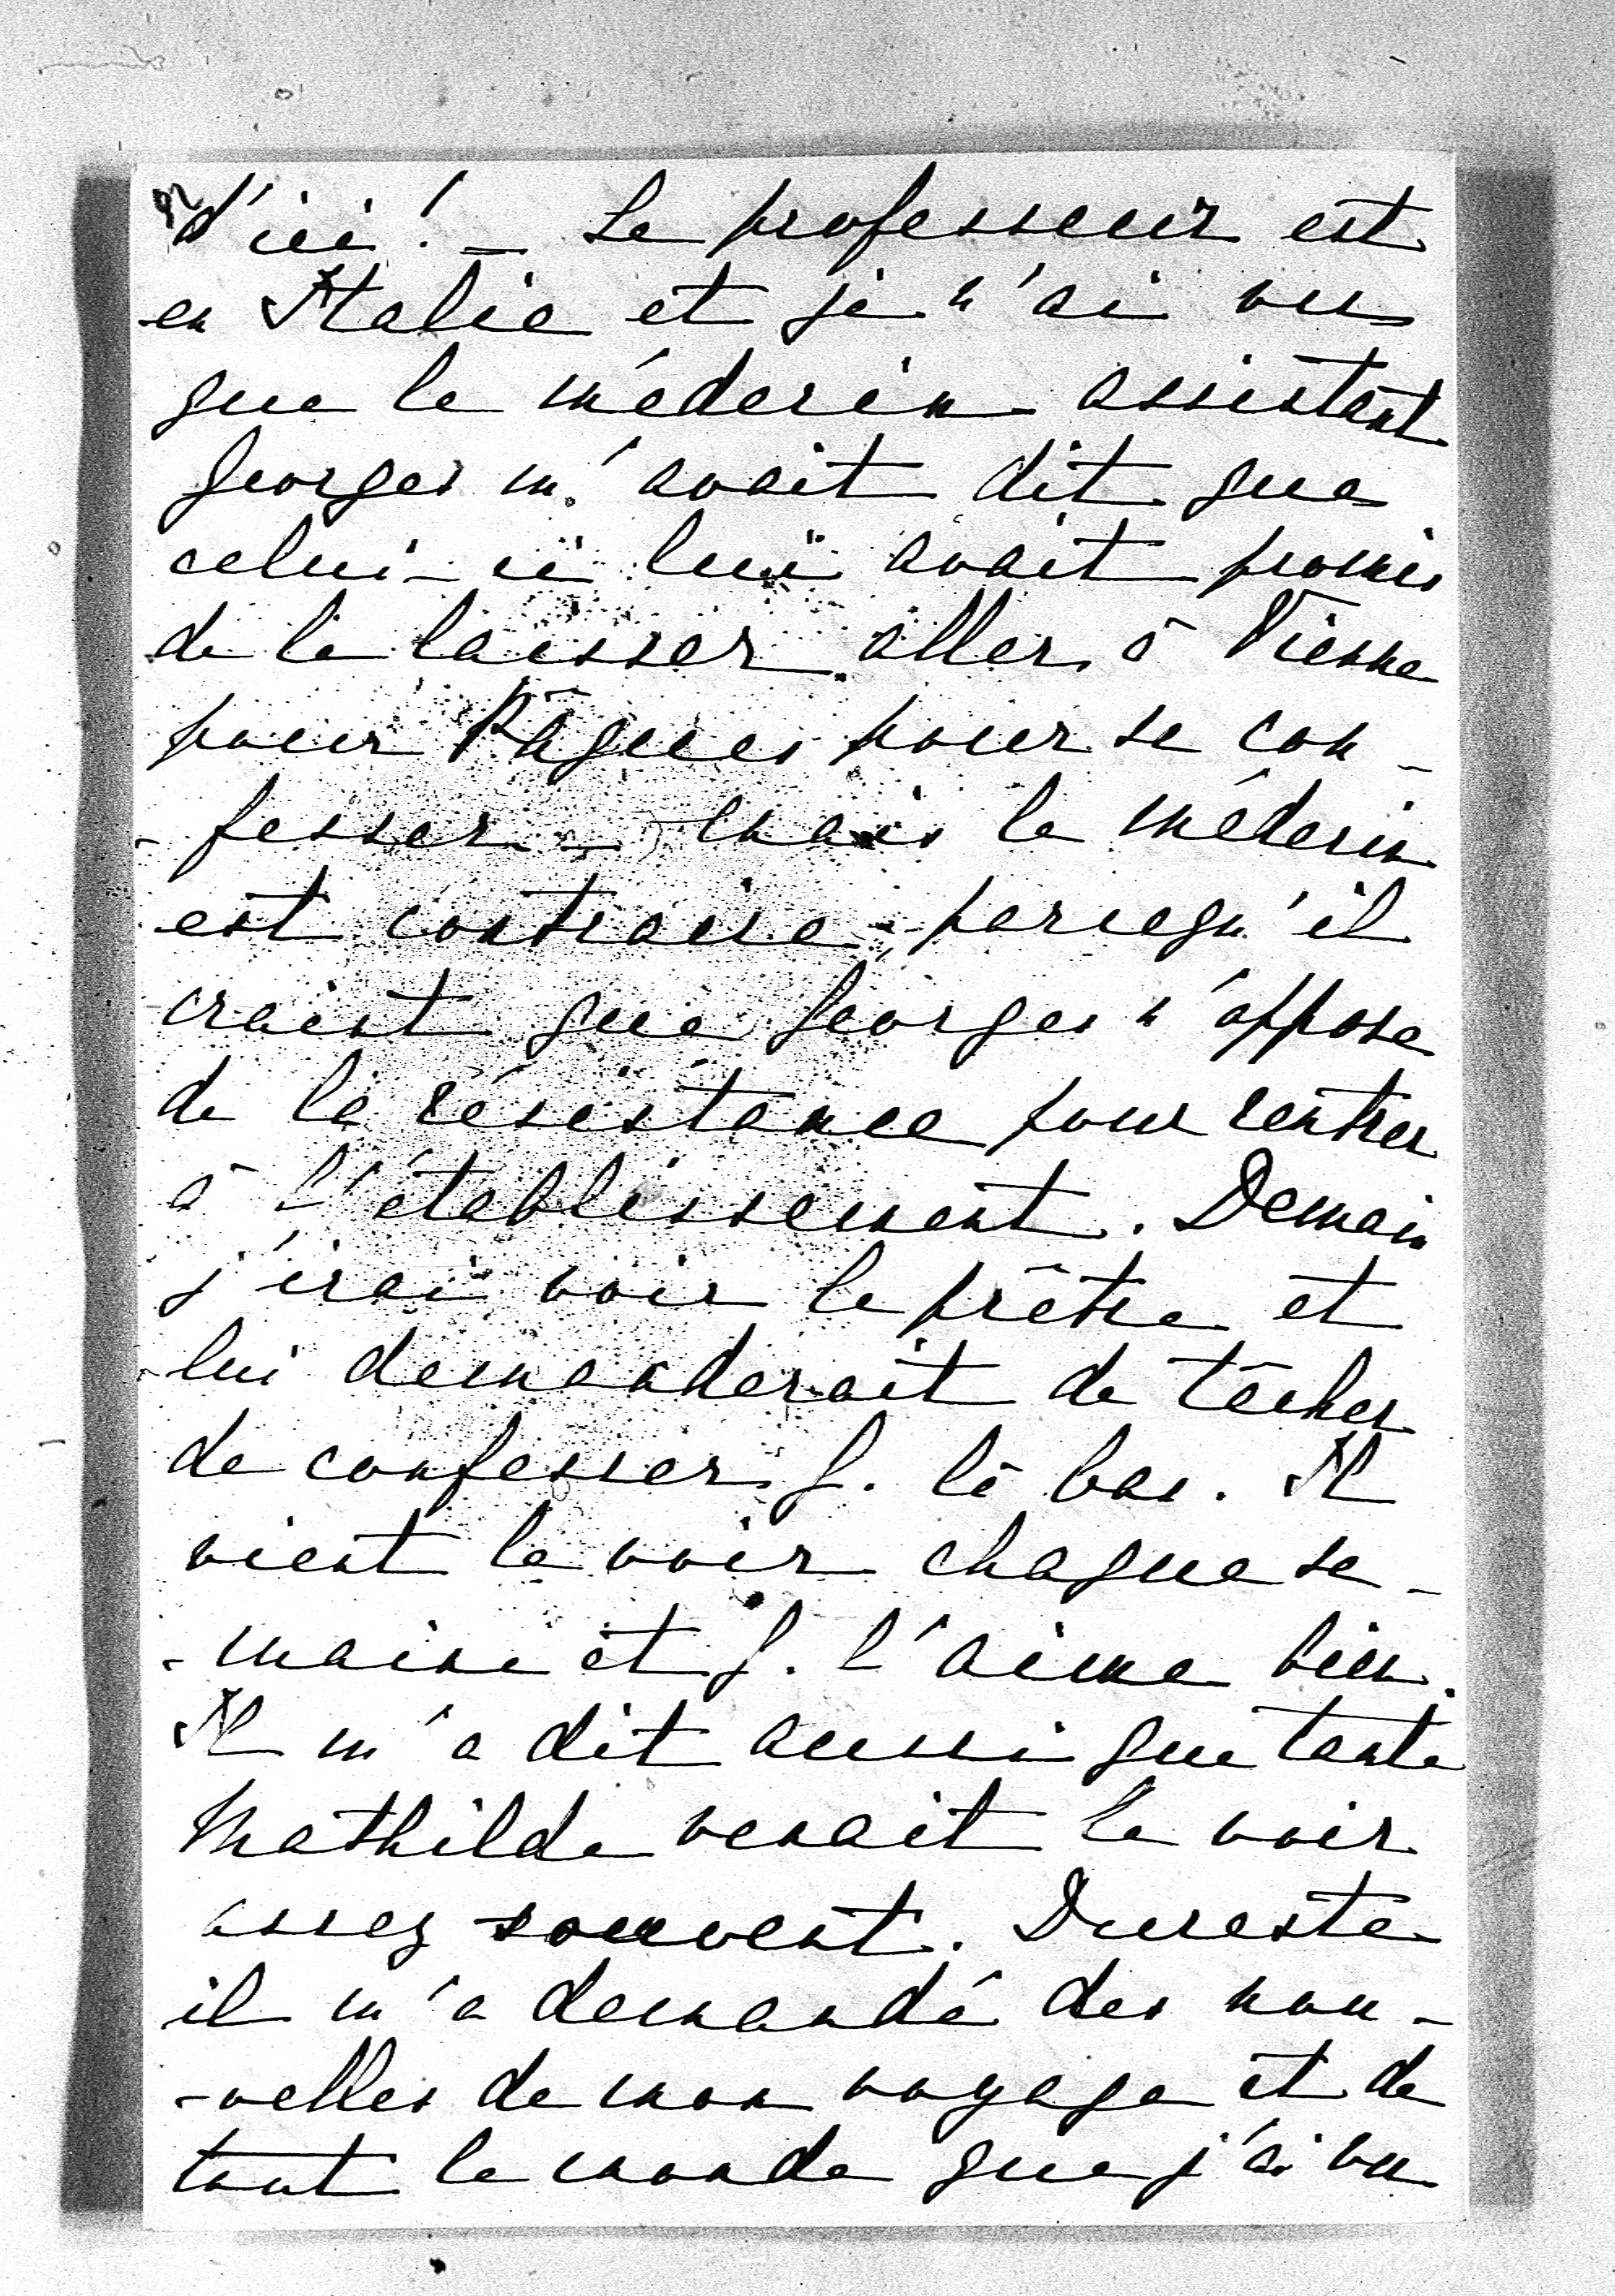 d'ici! — Le professeur est
en Italie et je n'ai vu
que le médecin assistant
Georges m'avait dit que
celui-ci lui avait promis
de le laisser aller à Vienne
pour Pâques pour se con-
-fesser — mais le médecin
est contraire, parcequ'il
craint que Georges n'oppose
de la résistance pour rentrer
à l'établissement. Demain
j'irai voir le prêtre et
lui demanderait de tâcher
de confesser G. là bas. Il
vient le voir chaque se-
-maine et G. l'aime bien.
Il m'a dit aussi que tante
Mathilde venait le voir
assez souvent. Dureste
il m'a demandé des nou-
-velles de mon voyage et de
tout le monde que j'ai vu